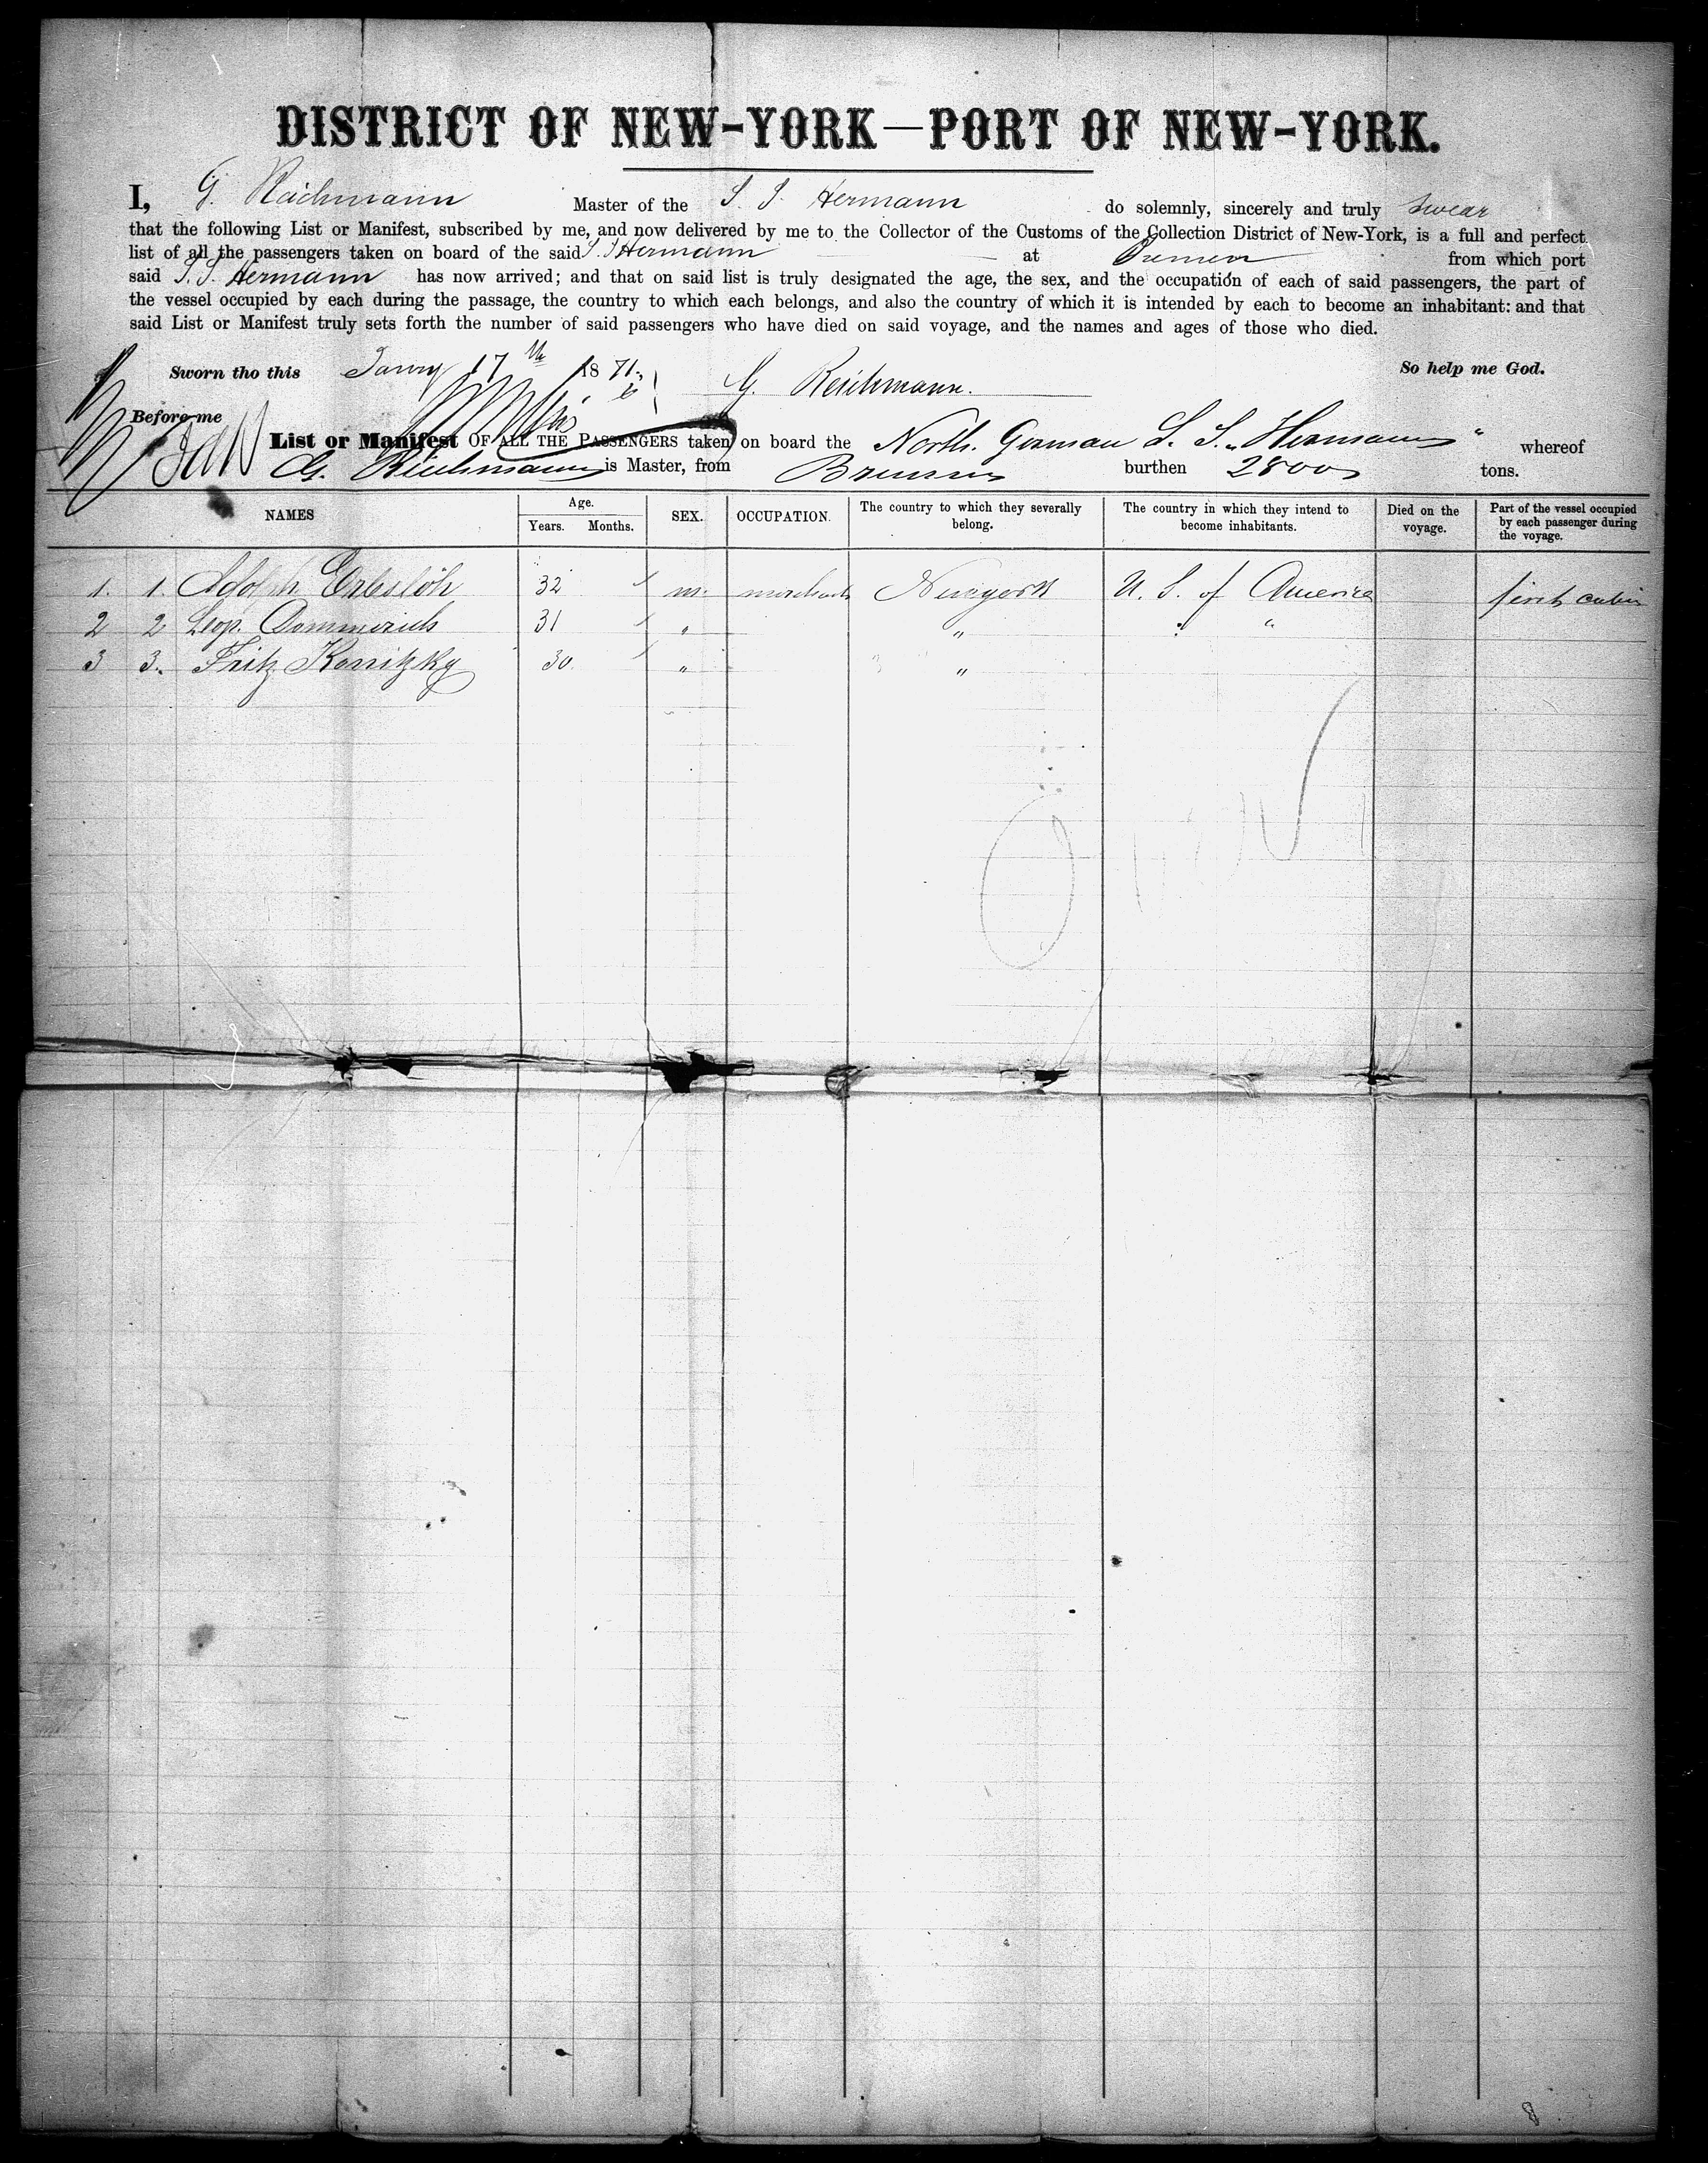 DISTRICT OF NEW-YORK—PORT OF NEW-YORK.
I, G. Reichmann Master of the S. S. Hermann do solemnly, sincerely and truly swear
that the following List or Manifest, subscribed by me, and now delivered by me to the Collector of the Customs of the Collection District of New-York, is a full and perfect
list of all the passengers taken on board of the said S. S Hermann at Bremen from which port
said S. S. Hermann has now arrived; and that on said list is truly designated the age, the sex, and the occupation of each of said passengers, the part of
the vessel occupied by each during the passage, the country to which each belongs, and also the country of which it is intended by each to become an inhabitant: and that
said List or Manifest truly sets forth the number of said passengers who have died on said voyage, and the names and ages of those who died.
Sworn tho this Janry 17th 1871. So help me God.
G. Reichmann.
Before me
List or Manifest OF ALL THE PASSENGERS taken on board the North. German S. S. „Hermann" whereof
G. Reichmann is Master, from Bremen burthen 2800 tons.
NAMES Age. Years. Months. SEX. OCCUPATION. The country to which they severally belong. The country in which they intend to become inhabitants. Died on the voyage. Part of the vessel occupied by each passenger during the voyage.
1. 1. Adolph Erbslöh 32 m. merchant Newyork U. S. of America first cabin
2 2 Leop. Dommerich 31 " " " "
3 3. Fritz Konitzky 30. " "